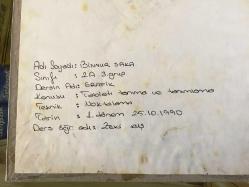 Adı Soyadı: Binnur SAKA
Sınıfı : 2A 3.grup
Dersin Adı: Seramik
Konusu : tanıma ve tanımlama
Teknik : Noktalama
Tarih : 1.dönem 25.10.1990
Ders öğr. adı: Zeki